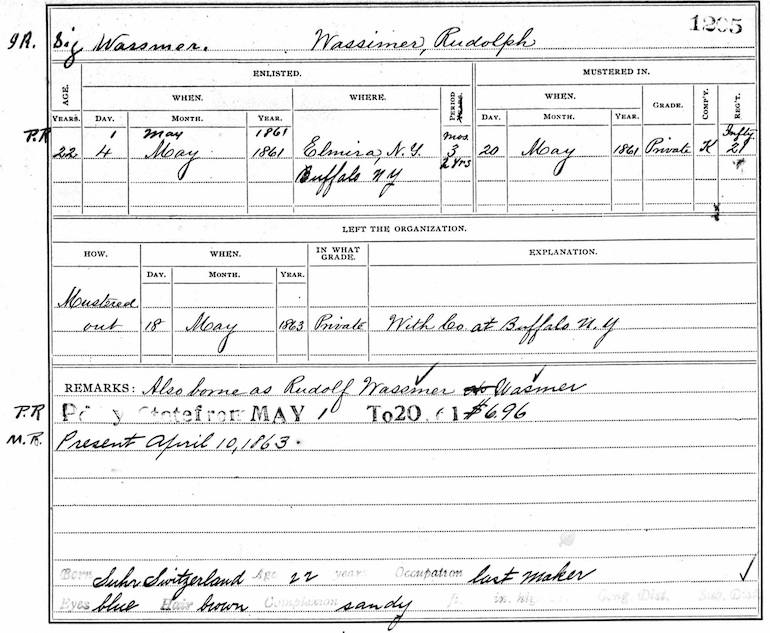 1205
9R. Sig Wassmer. Wassimer, Rudolph
ENLISTED. MUSTERED IN.
AGE. WHEN. WHERE. PERIOD YEARS. WHEN. GRADE. COMP'Y. REG'T.
YEARS. DAY. MONTH. YEAR. DAY. MONTH. YEAR.
P.R. 1 May 1861 mos Infty
22 4 May 1861 Elmira, N.Y. 3 20 May 1861 Private K 21
Buffalo NY 2 yrs
LEFT THE ORGANIZATION.
HOW. WHEN. IN WHAT GRADE. EXPLANATION.
DAY. MONTH. YEAR.
Mustered
out 18 May 1863 Private With Co. at Buffalo N.Y
REMARKS: Also borne as Rudolf Wassmer Wasmer
P.R Pd by State from MAY 1 To 20, 61 $6.96
M.R. Present April 10, 1863.
Born Suhr Switzerland Age 22 years Occupation last maker
Eyes blue Hair brown Complexion sandy ft. in. high Cong. Dist. Sub. Dist.